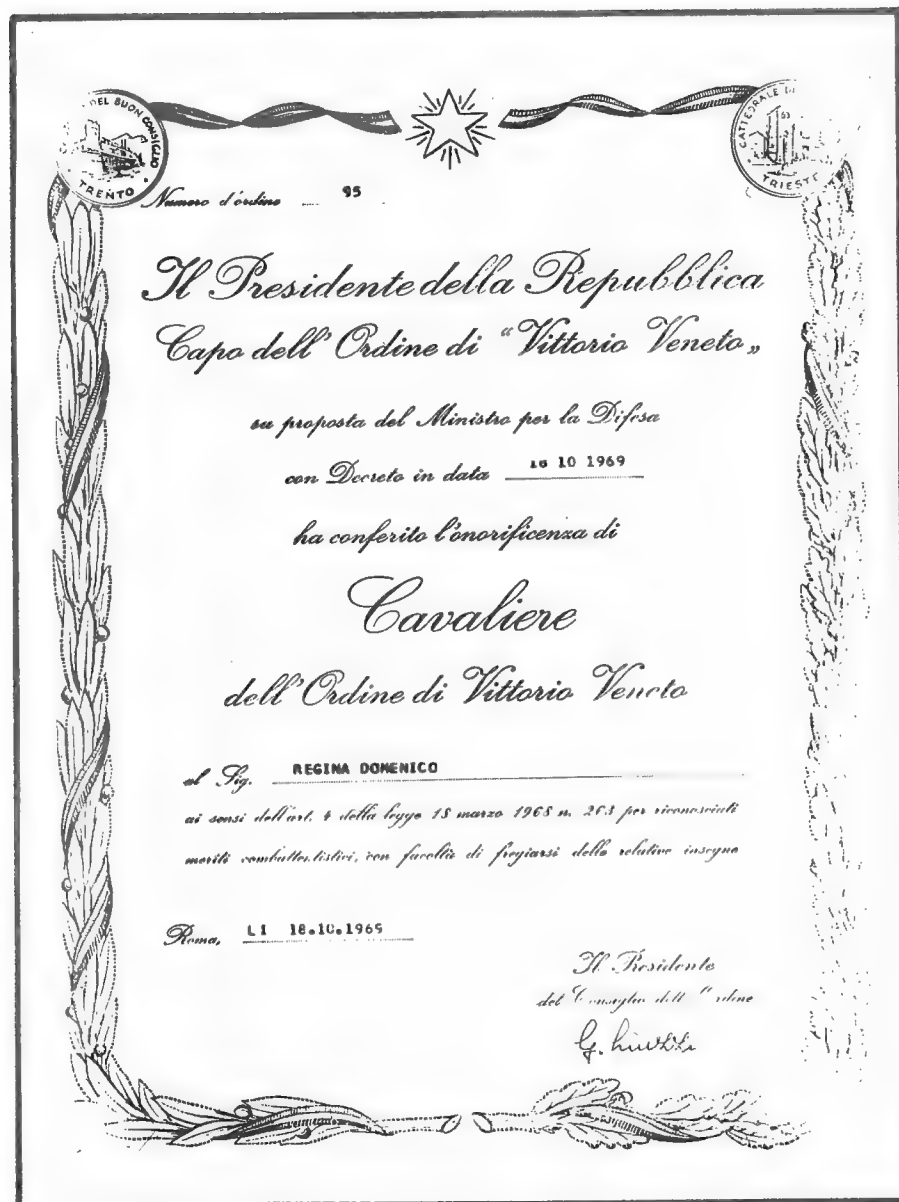 DEL BUON CONSIGLIO
TRENTO
CATTEDRALE DI
TRIESTE
Numero d'ordine 95
Il Presidente della Repubblica
Capo dell'Ordine di "Vittorio Veneto„
su proposta del Ministro per la Difesa
con Decreto in data 18 10 1969
ha conferito l'onorificenza di
Cavaliere
dell'Ordine di Vittorio Veneto
al Sig. REGINA DOMENICO
ai sensi dell'art. 4 della legge 18 marzo 1968 n. 263 per riconosciuti
meriti combattentistici, con facoltà di fregiarsi delle relative insegne
Roma, LI 18.10.1969
Il Presidente
del Consiglio dell'Ordine
G.